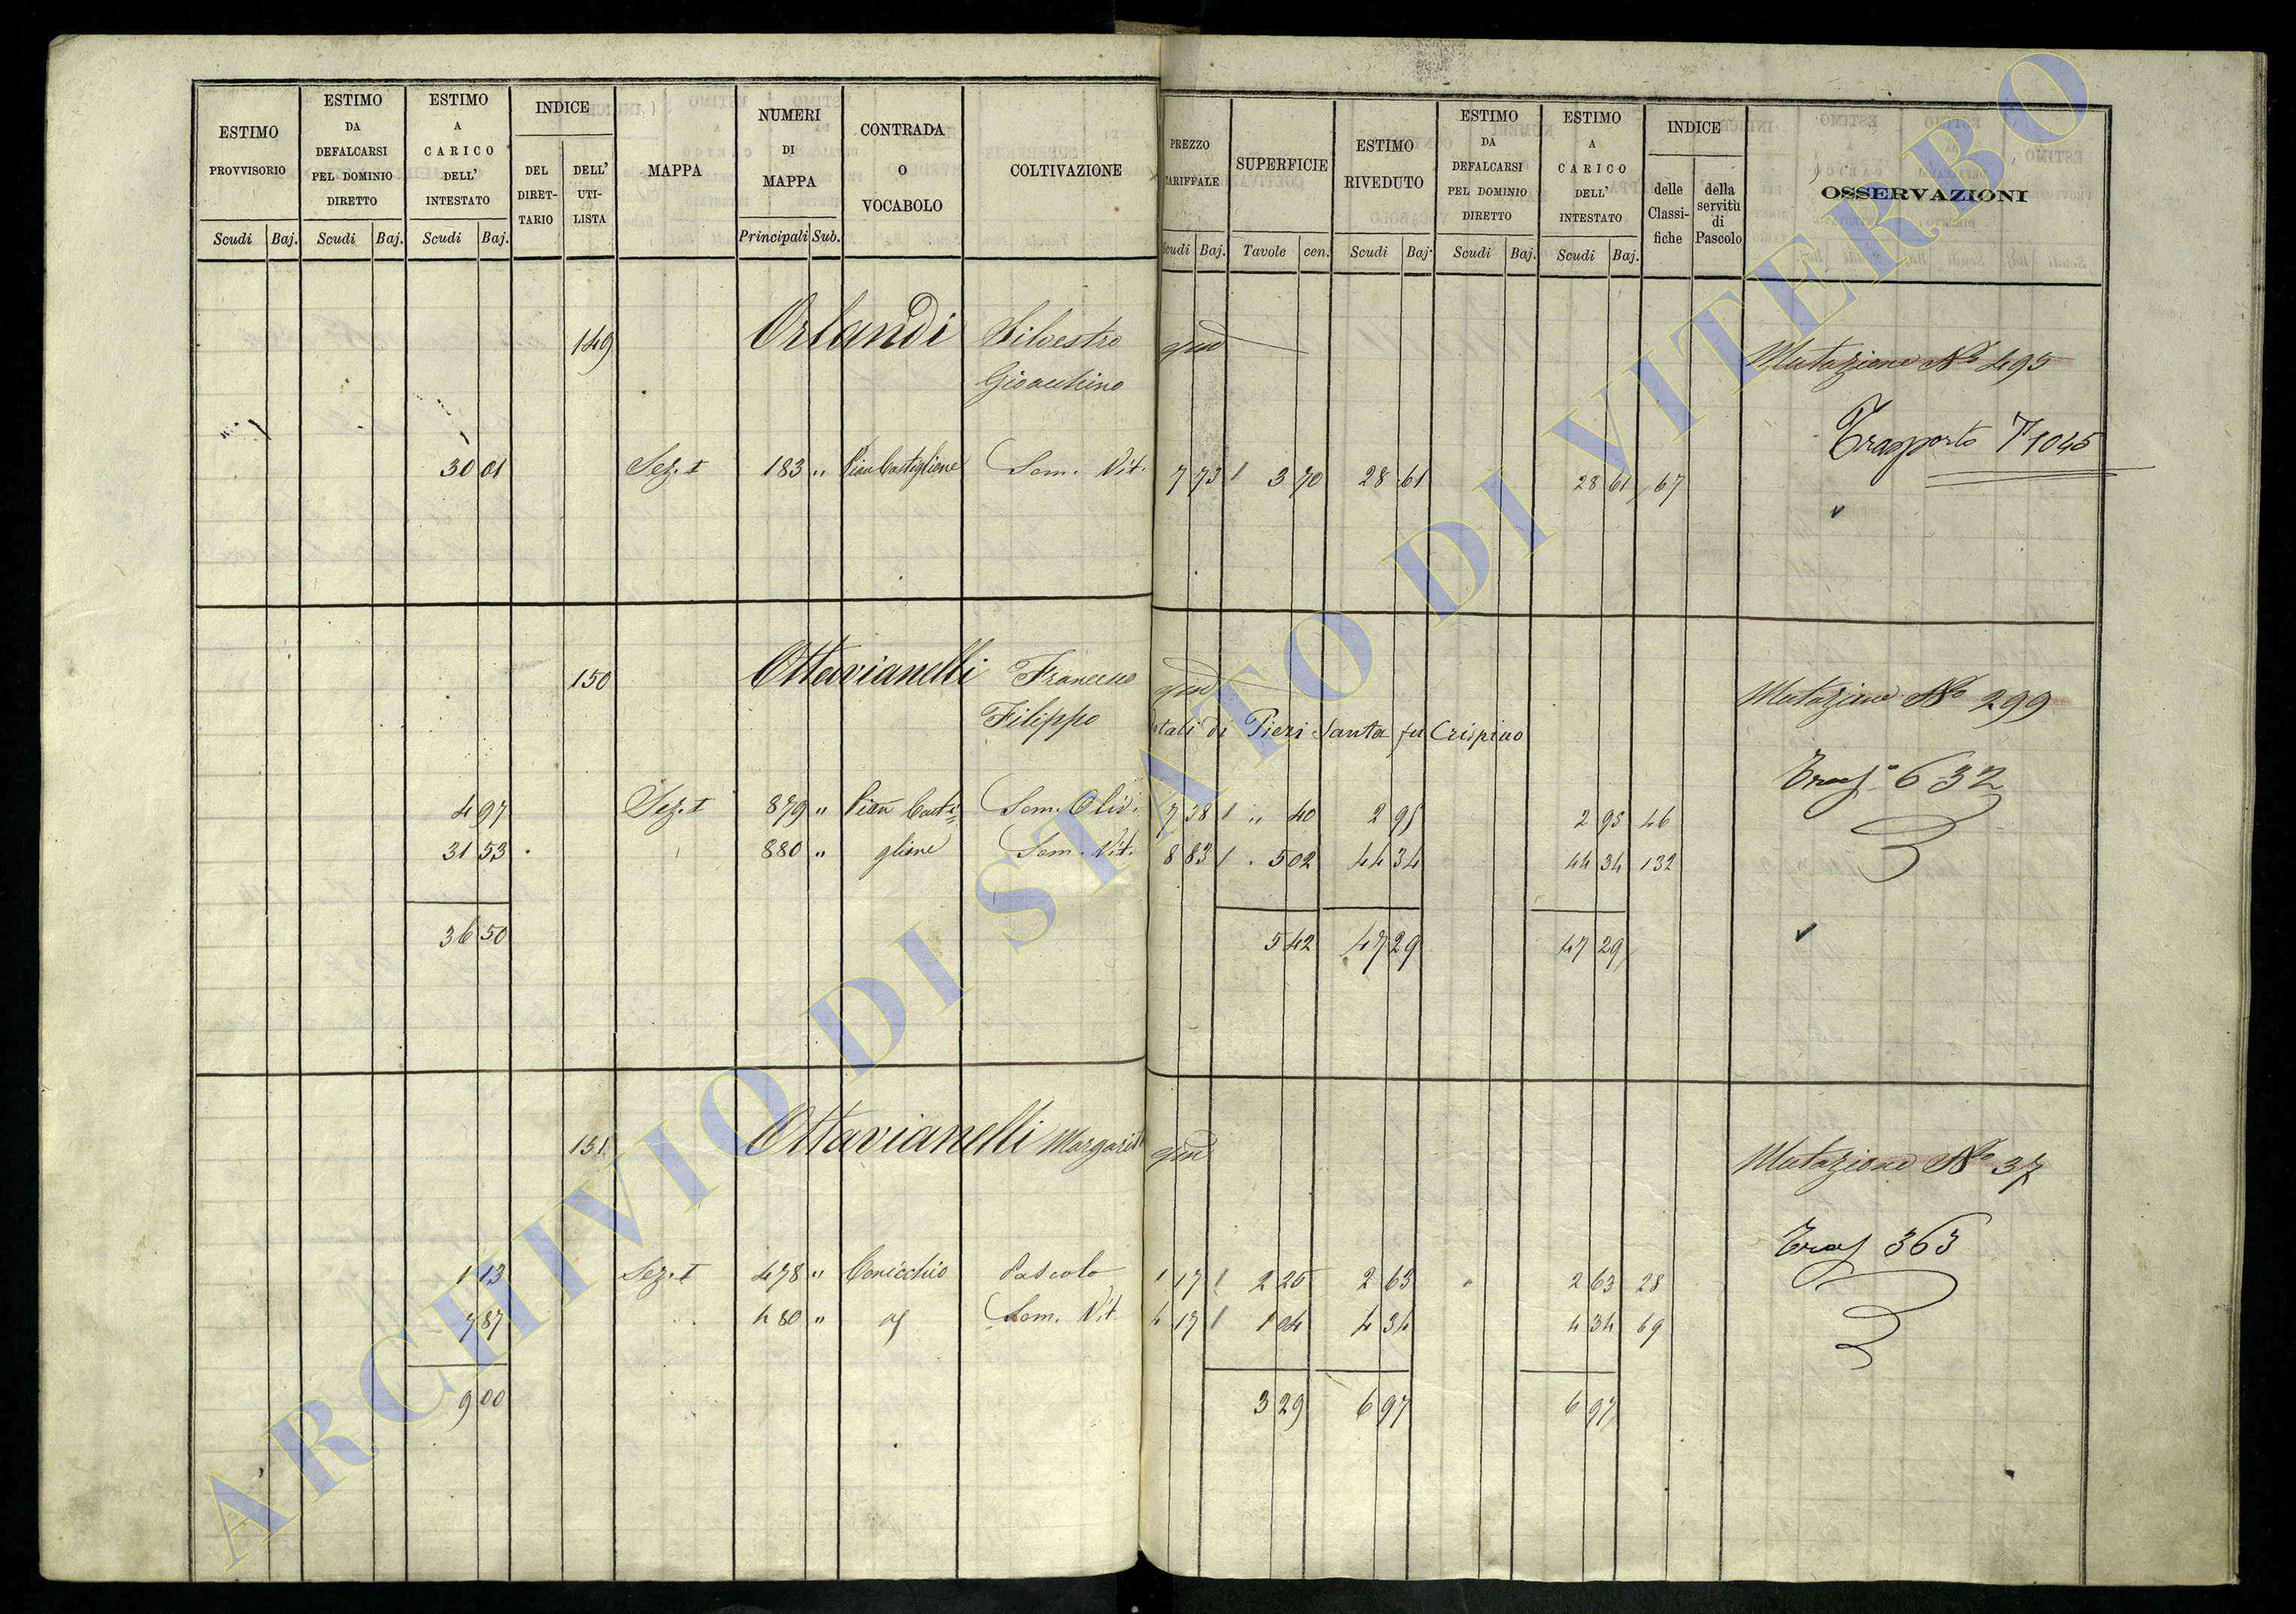 ESTIMO PROVVISORIO
Scudi Baj.
ESTIMO DA DEFALCARSI PEL DOMINIO DIRETTO
Scudi Baj.
ESTIMO A CARICO DELL' INTESTATO
Scudi Baj.
INDICE
DEL DIRET-TARIO
DELL' UTI-LISTA
MAPPA
NUMERI DI MAPPA
Principali Sub.
CONTRADA O VOCABOLO
COLTIVAZIONE
PREZZO TARIFFALE
Scudi Baj.
SUPERFICIE
Tavole cen.
ESTIMO RIVEDUTO
Scudi Baj.
ESTIMO DA DEFALCARSI PEL DOMINIO DIRETTO
Scudi Baj.
ESTIMO A CARICO DELL' INTESTATO
Scudi Baj.
INDICE
delle Classi-fiche
della servitù di Pascolo
OSSERVAZIONI
149 Orlandi Silvestro qm Mutazione No 495
Gioacchino
Trasporto T 1045
30 01 Sez. I 183 " Pian Castiglione Sem. Vit. 7 73 3 70 28 61 28 61 67
150 Ottavianelli Francesco qm Mutazione No 299
Filippo dotali di Pieri Santa fu Crispino
Trasp 632
4 97 Sez. I 879 " Pian Casti= Sem. Oliv. 7 38 " 40 2 95 2 95 46
31 53 880 " glione Sem. Vit. 8 83 5 02 44 34 44 34 132
36 50 5 42 47 29 47 29
151 Ottavianelli Margarita qm Mutazione No 37
Trasp 363
1 13 Sez. I 478 " Conicchio Pascolo 1 17 2 25 2 63 " 2 63 28
7 87 480 " Sem. Vit 4 17 1 04 4 34 4 34 69
9 00 3 29 6 97 6 97
ARCHIVIO DI STATO DI VITERBO